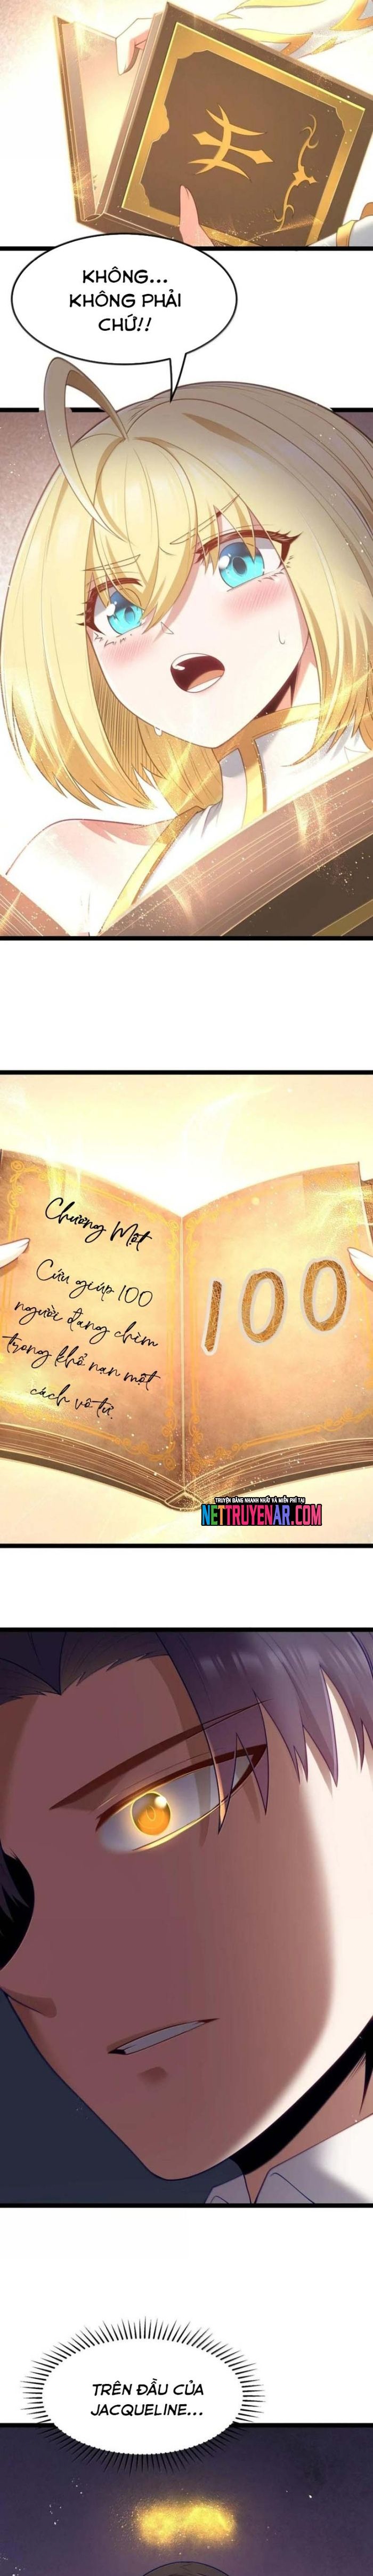 KHÔNG...
KHÔNG PHẢI
CHỨ!!
Chương Một
Cứu giúp 100
người đang chìm
trong khổ nạn một
cách vô tư.
100
TRUYỆN ĐĂNG NHANH NHẤT VÀ MIỄN PHÍ TẠI
NETTRUYENAR.COM
TRÊN ĐẦU CỦA
JACQUELINE...